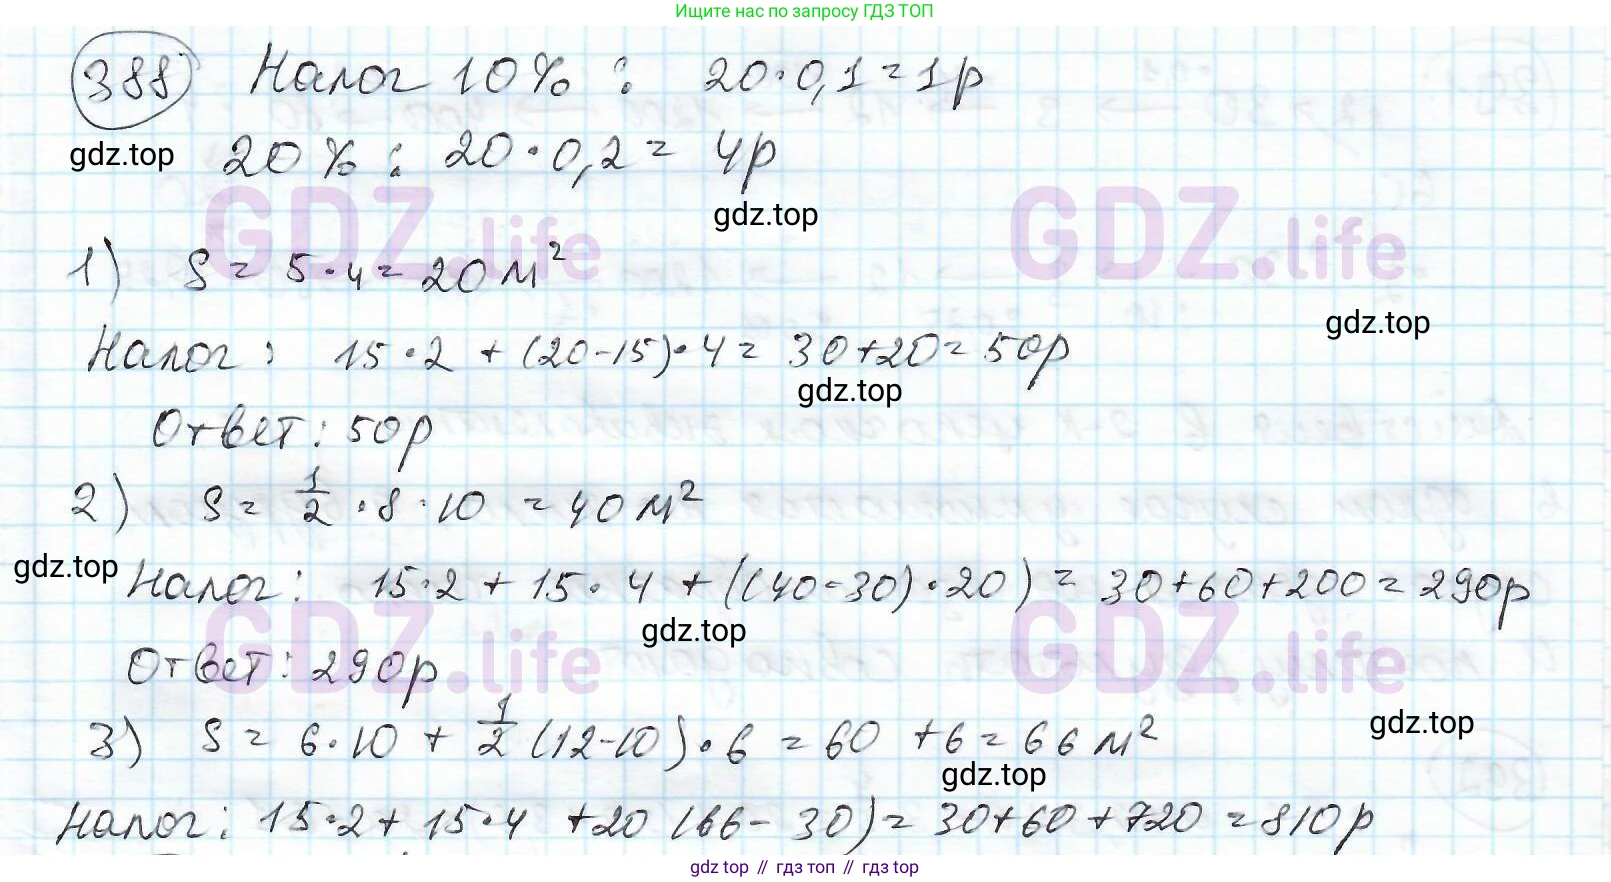 Ищите нас по запросу ГДЗ ТОП
388 Налог 10% : 20·0,1=1р
gdz.top
20% : 20·0,2= 4р
gdz.top
GDZ.life GDZ.life
1) S = 5·4= 20 м²
gdz.top
Налог: 15·2 + (20-15)·4= 30+20=50р
gdz.top
Ответ: 50р
2) S = 1/2 ·8·10 = 40 м²
gdz.top
Налог: 15·2 + 15·4 + ((40-30)·20) = 30+60+200=290р
gdz.top
GDZ.life GDZ.life
Ответ: 290р
gdz.top
3) S = 6·10 + 1/2 (12-10)·6 = 60 +6=66 м²
gdz.top
Налог: 15·2+ 15·4 +20 (66-30)= 30+60+720 =810р
gdz top // гдз топ // гдз top